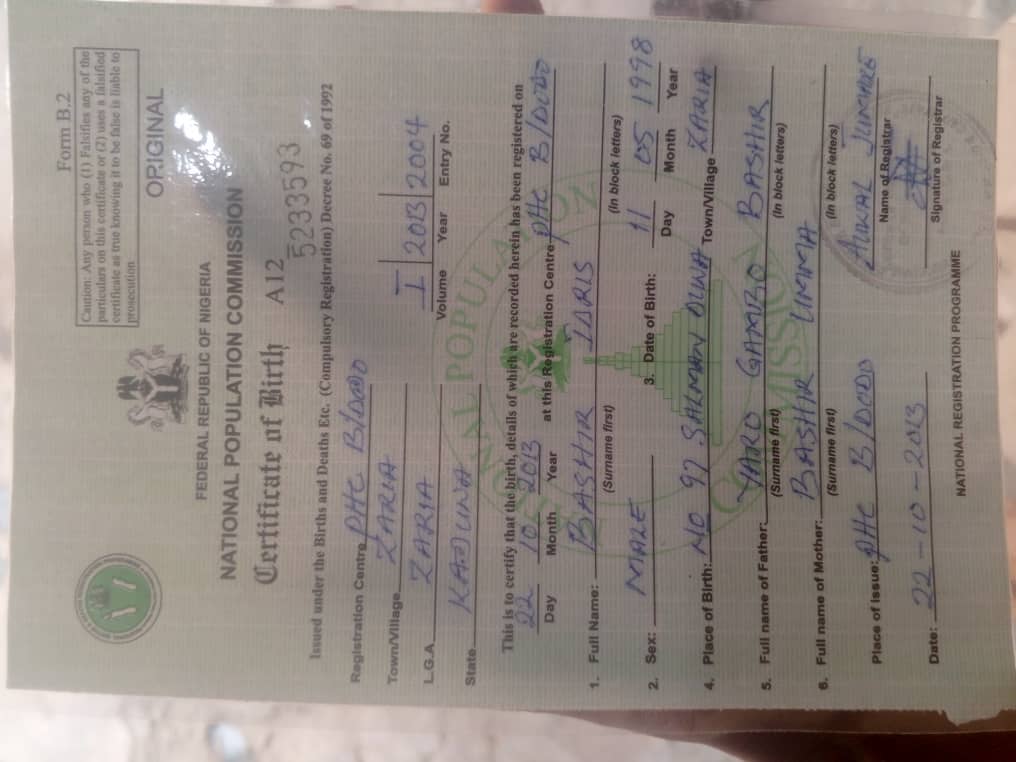 Form B.2
Caution: Any person who (1) Falsifies any of the
particulars on this certificate or (2) uses a falsified
certificate as true knowing it to be false is liable to
prosecution
ORIGINAL
FEDERAL REPUBLIC OF NIGERIA
NATIONAL POPULATION COMMISSION
Certificate of Birth A12
5233593
Issued under the Births and Deaths Etc. (Compulsory Registration) Decree No. 69 of 1992
Registration Centre PHC B/DODO
Town/Village ZARIA
L.G.A. ZARIA
State KADUNA
I 2013 2004
Volume Year Entry No.
This is to certify that the birth, details of which are recorded herein has been registered on
22 10 2013 at this Registration Centre PHC B/DODO
Day Month Year
1. Full Name: BASHIR IDRIS
(Surname first) (In block letters)
2. Sex: MALE 3. Date of Birth: 11 05 1998
Day Month Year
4. Place of Birth: NO 97 SALMAN DUNA Town/Village ZARIA
5. Full name of Father: YARO GAMBO BASHIR
(Surname first) (In block letters)
6. Full name of Mother: BASHIR UMMA
(Surname first) (In block letters)
Place of issue: PHC B/DODO AUWAL JUMARE
Name of Registrar
Date: 22-10-2013
Signature of Registrar
NATIONAL REGISTRATION PROGRAMME
NATIONAL POPULATION COMMISSION